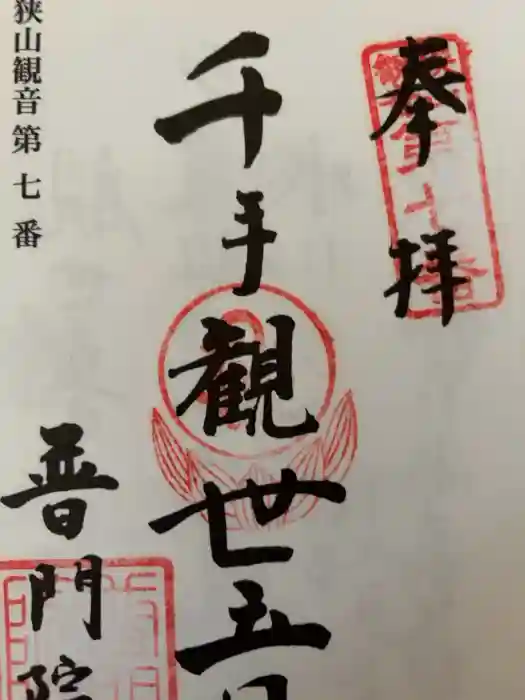 奉拝
千手観世音
普門院
狭山観音第七番